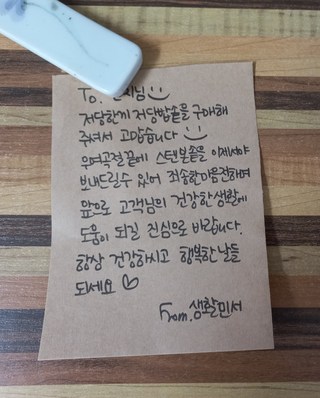 To. 님
저당한끼 저당밥솥을 구매해
주셔서 고맙습니다
우여곡절끝에 스텐볼솥을 이제서야
보내드릴수 있어 죄송한마음전하며
앞으로 고객님의 건강한 생활에
도움이 되길 진심으로 바랍니다.
항상 건강하시고 행복한 날들
되세요 ♡
From. 생활민서